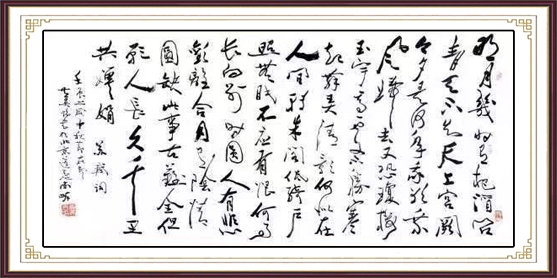 明月幾时有把酒问
青天不知天上宫阙
今夕是何年我欲乘
风归去又恐琼楼
玉宇高处不胜寒
起舞弄清影何似在
人间转朱阁低绮户
照无眠不应有恨何事
长向别时圆人有悲
欢离合月有阴晴
圆缺此事古难全但
愿人长久千里
共婵娟 苏轼词